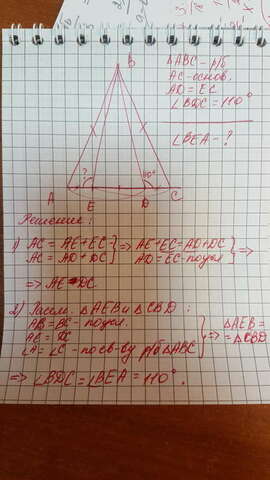 B
ΔABC - р/б
AC - основ.
AD = EC
∠BDC = 110°
∠BEA - ?
?
110°
A
E
D
C
Решение:
1) AC = AE + EC
AC = AD + DC
} => AE + EC = AD + DC
AD = EC - по усл
} =>
=> AE = DC.
2) Рассм. ΔAEB и ΔCBD :
AB = BC - по усл.
AE = DC
∠A = ∠C - по св-ву р/б ΔABC
} => ΔAEB =
= ΔCBD
=> ∠BDC = ∠BEA = 110°.